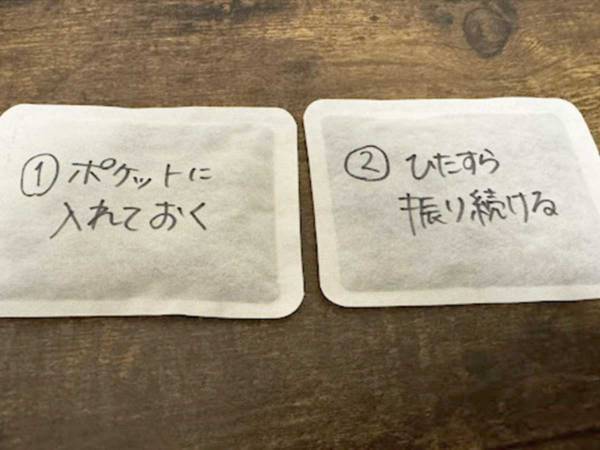 ①ポケットに
入れておく
②ひたすら
振り続ける